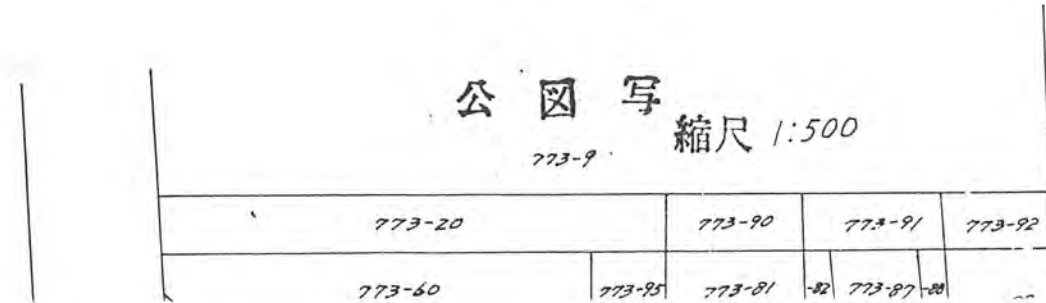 公図写
縮尺 1:500
773-9
773-20 773-90 773-91 773-92
773-60 773-95 773-81 -82 773-87 -88